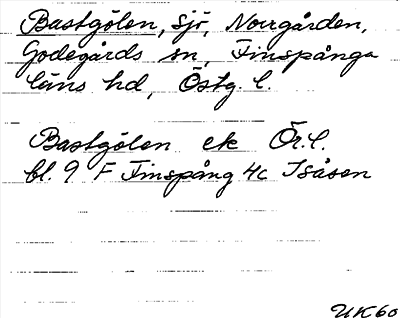 Bastgölen, sjö, Norrgården,
Godegårds sn, Finspånga
läns hd, Östg. l.
Bastgölen ek Ör. l.
bl. 9 F Finspång 4c Isåsen
UK60